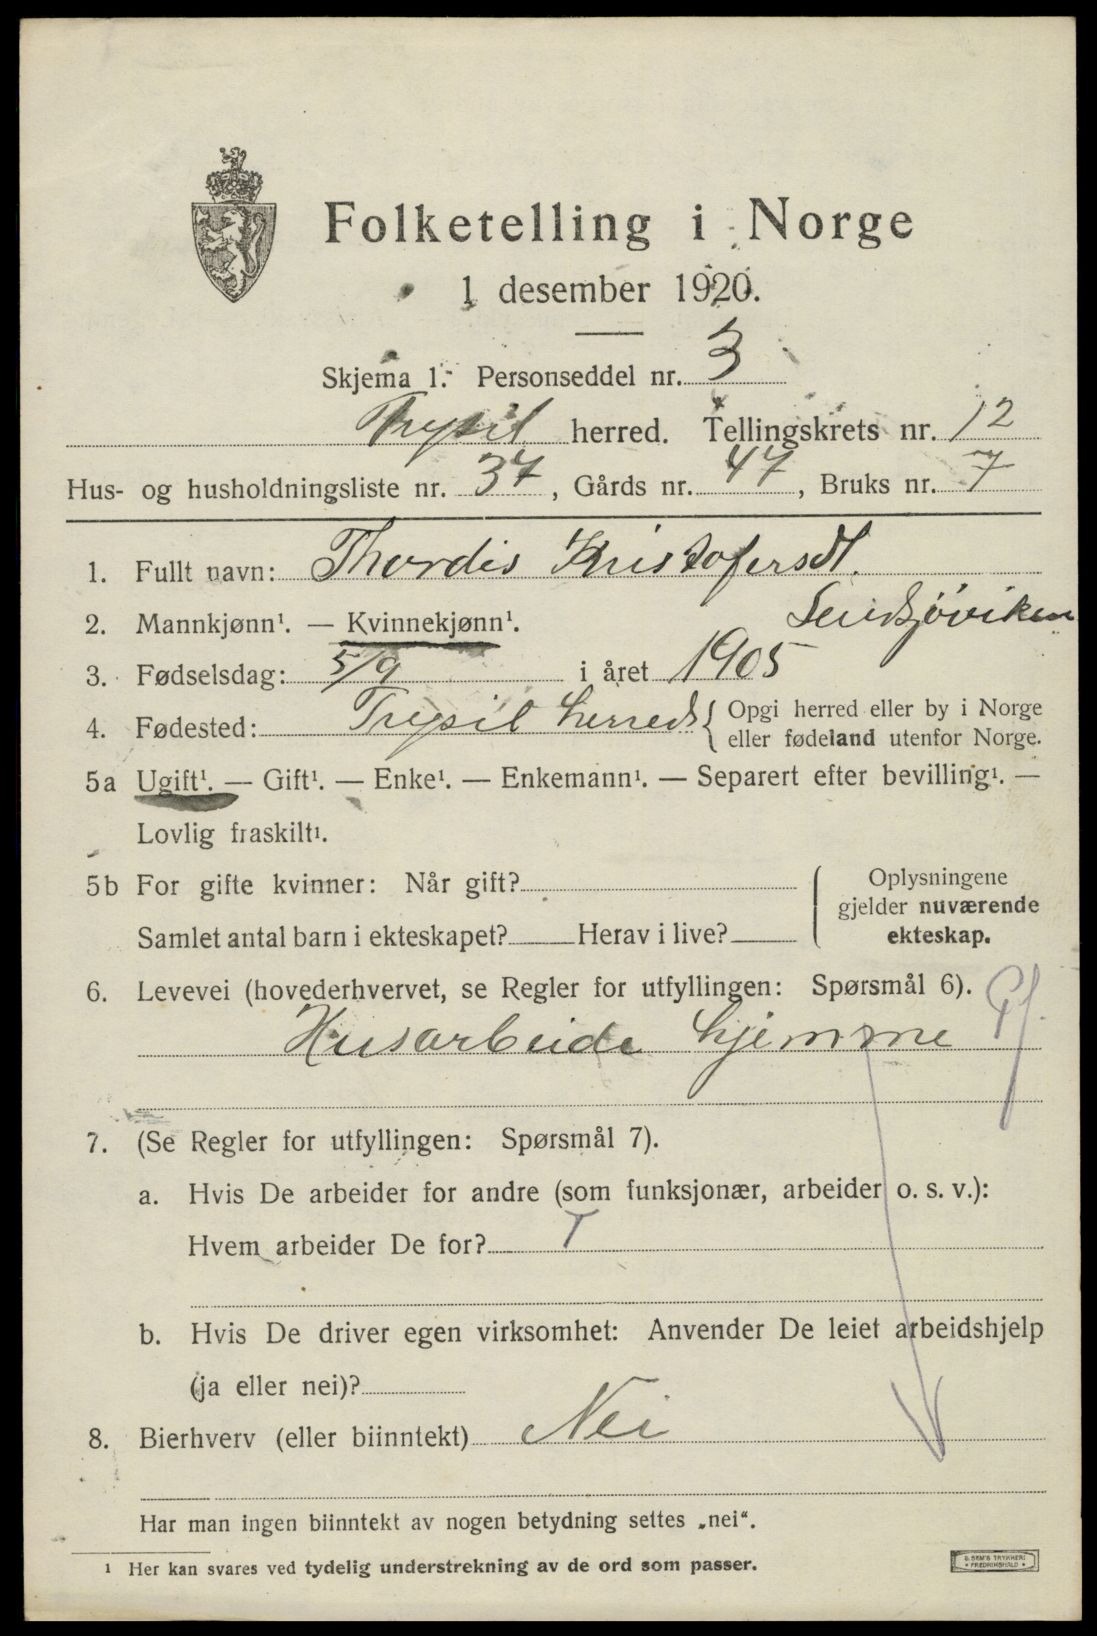 Folketelling i Norge
1 desember 1920.
Skjema 1. Personseddel nr. 3
Trysil herred. Tellingskrets nr. 12
Hus- og husholdningsliste nr. 37, Gårds nr. 47, Bruks nr. 7
1. Fullt navn: Thordis Kristofersdt.
2. Mannkjønn¹. — Kvinnekjønn¹.
3. Fødselsdag: 5/9 i året 1905
4. Fødested: Trysil herred { Opgi herred eller by i Norge
eller fødeland utenfor Norge.
5a Ugift¹. — Gift¹. — Enke¹. — Enkemann¹. — Separert efter bevilling¹. —
Lovlig fraskilt¹.
5b For gifte kvinner: Når gift?
Samlet antal barn i ekteskapet? Herav i live?
Oplysningene
gjelder nuværende
ekteskap.
6. Levevei (hovederhvervet, se Regler for utfyllingen: Spørsmål 6).
Husarbeide hjemme
7. (Se Regler for utfyllingen: Spørsmål 7).
a. Hvis De arbeider for andre (som funksjonær, arbeider o. s. v.):
Hvem arbeider De for?
b. Hvis De driver egen virksomhet: Anvender De leiet arbeidshjelp
(ja eller nei)?
8. Bierhverv (eller biinntekt) Nei
Har man ingen biinntekt av nogen betydning settes „nei“.
¹ Her kan svares ved tydelig understrekning av de ord som passer.